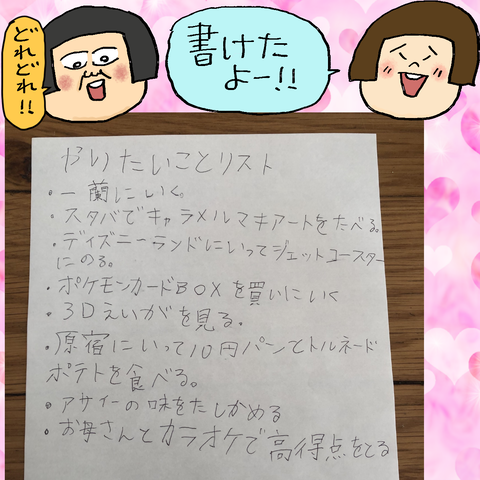 どれどれ!!
書けた
よー!!
やりたいことリスト
・一蘭にいく。
・スタバでキャラメルマキアートをたべる。
・ディズニーランドにいってジェットコースター
にのる。
・ポケモンカードBOXを買いにいく
・3Dえいがを見る。
・原宿にいって10円パンとトルネード
ポテトを食べる。
・アサイーの味をたしかめる
・お母さんとカラオケで高得点をとる